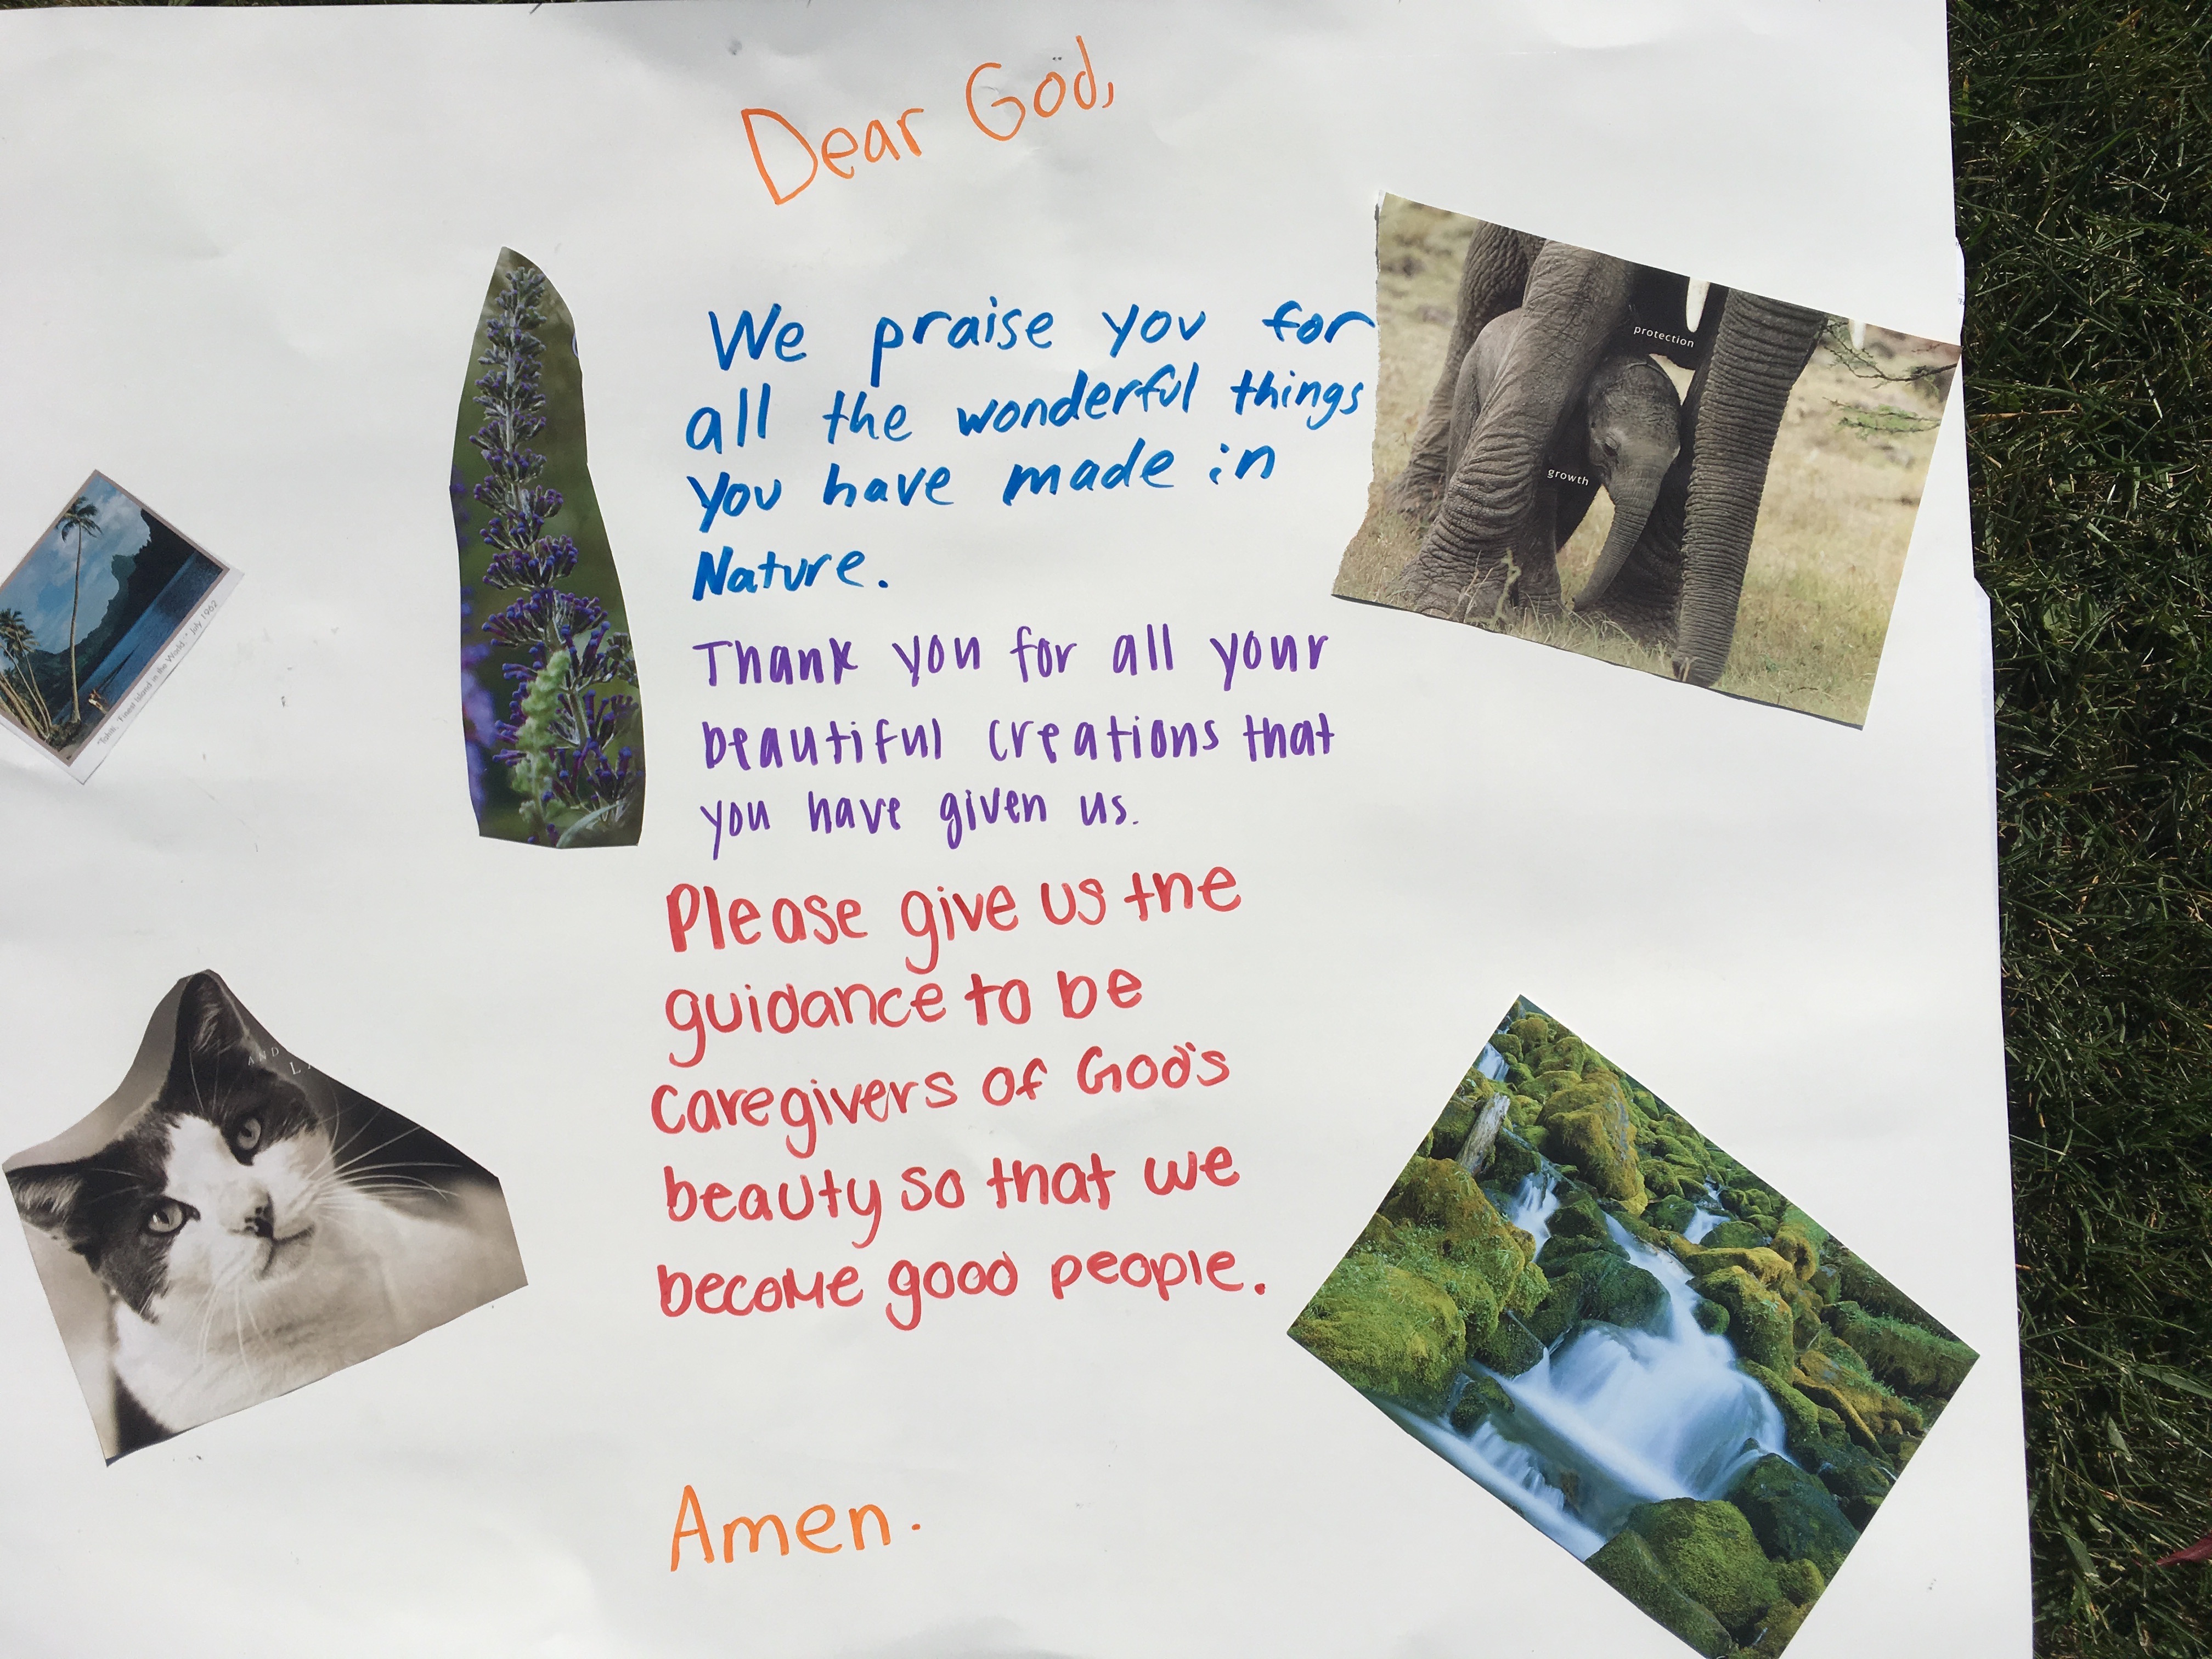 Dear God,
We praise you for
all the wonderful things
you have made in
Nature.
Thank you for all your
beautiful creations that
you have given us.
Please give us the
guidance to be
caregivers of God's
beauty so that we
become good people.
Amen.
protection
growth
"Tahiti. 'Finest Island in the World.'" July 1962
AND